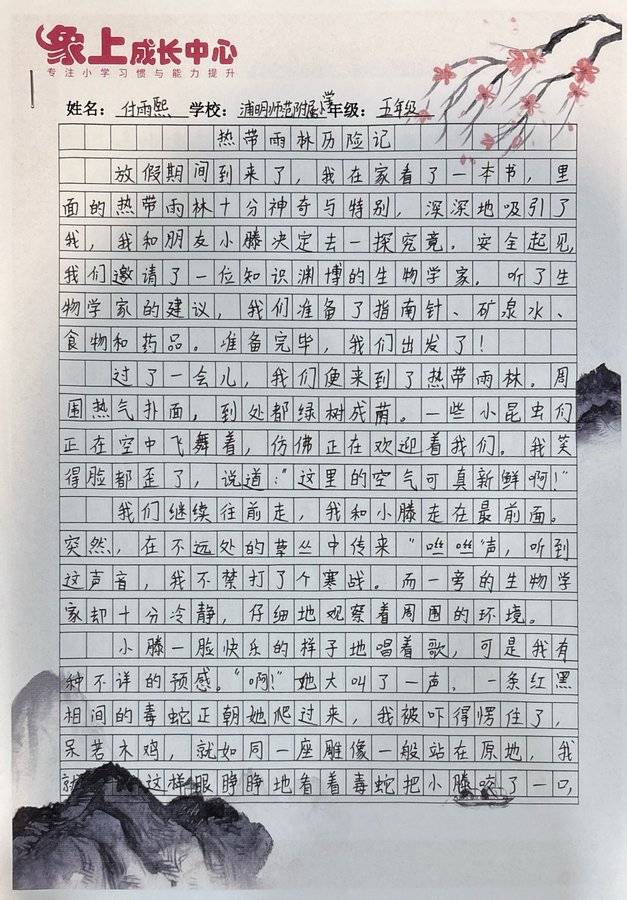 象上成长中心
专注小学习惯与能力提升
姓名: 付雨熙 学校: 浦明师范附属小学 年级: 五年级
热带雨林历险记
放假期间到来了，我在家看了一本书，里
面的热带雨林十分神奇与特别，深深地吸引了
我，我和朋友小滕决定去一探究竟。安全起见，
我们邀请了一位知识渊博的生物学家，听了生
物学家的建议，我们准备了指南针、矿泉水、
食物和药品。准备完毕，我们出发了！
过了一会儿，我们便来到了热带雨林。周
围热气扑面，到处都绿树成荫。一些小昆虫们
正在空中飞舞着，仿佛正在欢迎着我们。我笑
得脸都歪了，说道："这里的空气可真新鲜啊！"
我们继续往前走，我和小滕走在最前面。
突然，在不远处的草丛中传来"咝咝"声，听到
这声音，我不禁打了个寒战。而一旁的生物学
家却十分冷静，仔细地观察着周围的环境。
小滕一脸快乐的样子地唱着歌，可是我有
种不详的预感。"啊！"她大叫了一声，一条红黑
相间的毒蛇正朝她爬过来，我被吓得愣住了，
呆若木鸡，就如同一座雕像一般站在原地，我
就这样眼睁睁地看着毒蛇把小滕咬了一口，